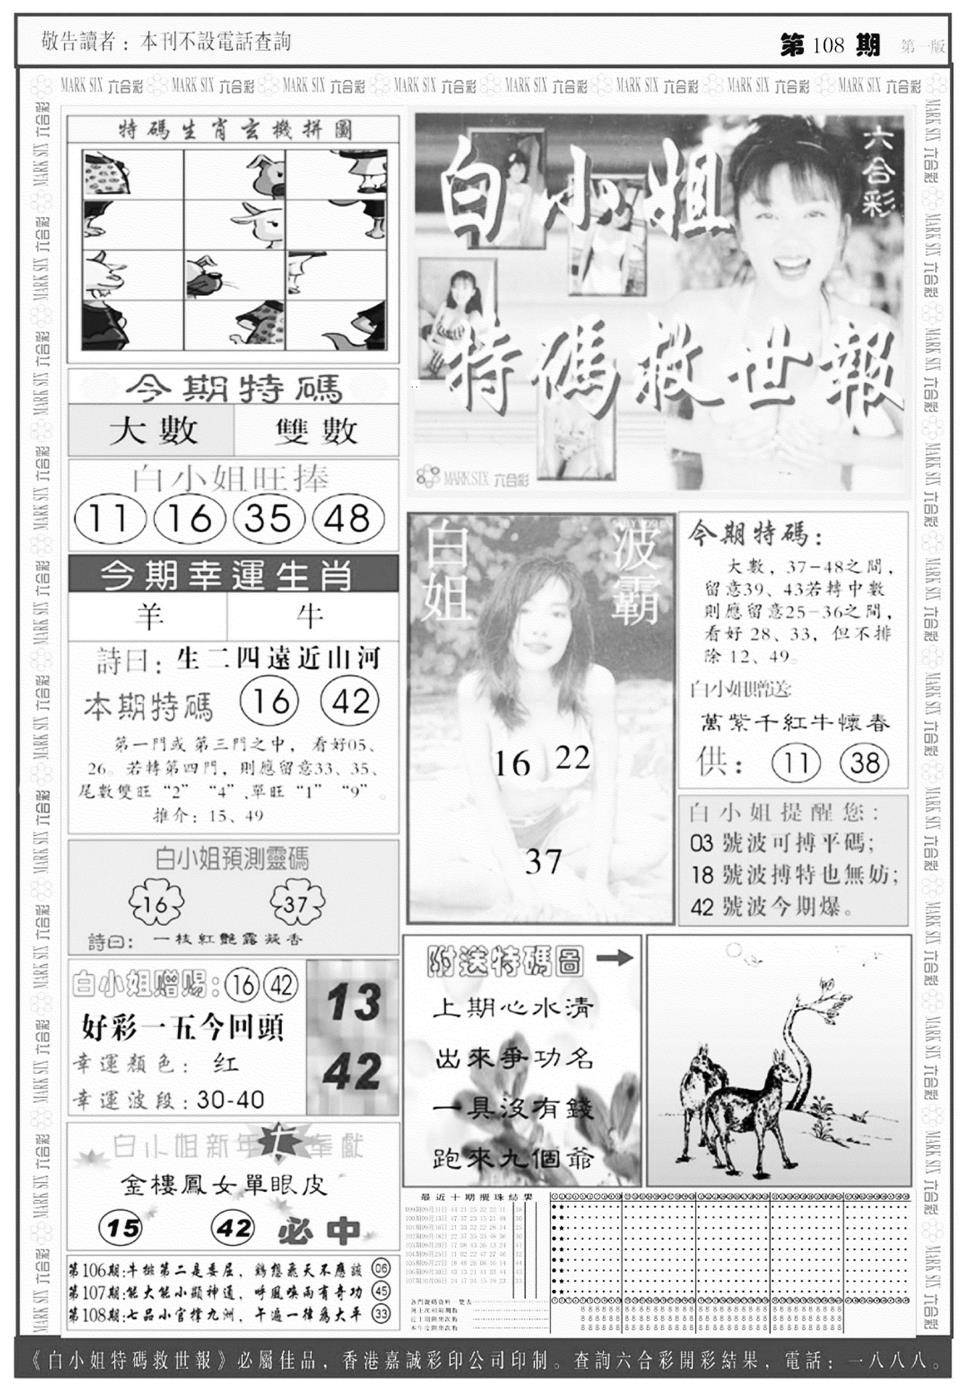 敬告讀者：本刊不設電話查詢
第108期 第一版
MARK SIX 六合彩 MARK SIX 六合彩 MARK SIX 六合彩 MARK SIX 六合彩 MARK SIX 六合彩 MARK SIX 六合彩 MARK SIX 六合彩 MARK SIX 六合彩
特碼生肖玄機拼圖
六合彩
白小姐
特碼救世報
MARK SIX 六合彩
今期特碼
大數 雙數
白小姐旺捧
11 16 35 48
今期幸運生肖
羊 牛
詩曰：生二四遠近山河
本期特碼 16 42
第一門或第三門之中，看好05、
26。若轉第四門，則應留意33、35、
尾數雙旺“2” “4”，單旺“1” “9”。
推介：15、49
白小姐預測靈碼
16 37
詩曰：一枝紅艷露凝香
白小姐赠赐：16 42
好彩一五今回頭
幸運顏色：红
幸運波段：30-40
13
42
白小姐新年 奉獻
金樓鳳女單眼皮
15 42 必中
第106期：牛排第二是委屈，鶴想飛天不應該 06
第107期：能大能小顯神通，呼風喚雨有奇功 45
第108期：七品小官擇九洲，午遍一律為太平 33
白姐
波霸
16 22
37
今期特碼：
大數，37-48之間，
留意39、43若轉中數
則應留意25-36之間，
看好28、33，但不排
除12、49。
白小姐贈送
萬紫千紅牛懷春
供：11 38
白小姐提醒您：
03 號波可搏平碼；
18 號波搏特也無妨；
42 號波今期爆。
附送特碼圖
上期心水清
出來爭功名
一具沒有錢
跑來九個爺
最近十期攪珠結果
《白小姐特碼救世報》必屬佳品，香港嘉誠彩印公司印制。查詢六合彩開彩結果，電話：一八八八。